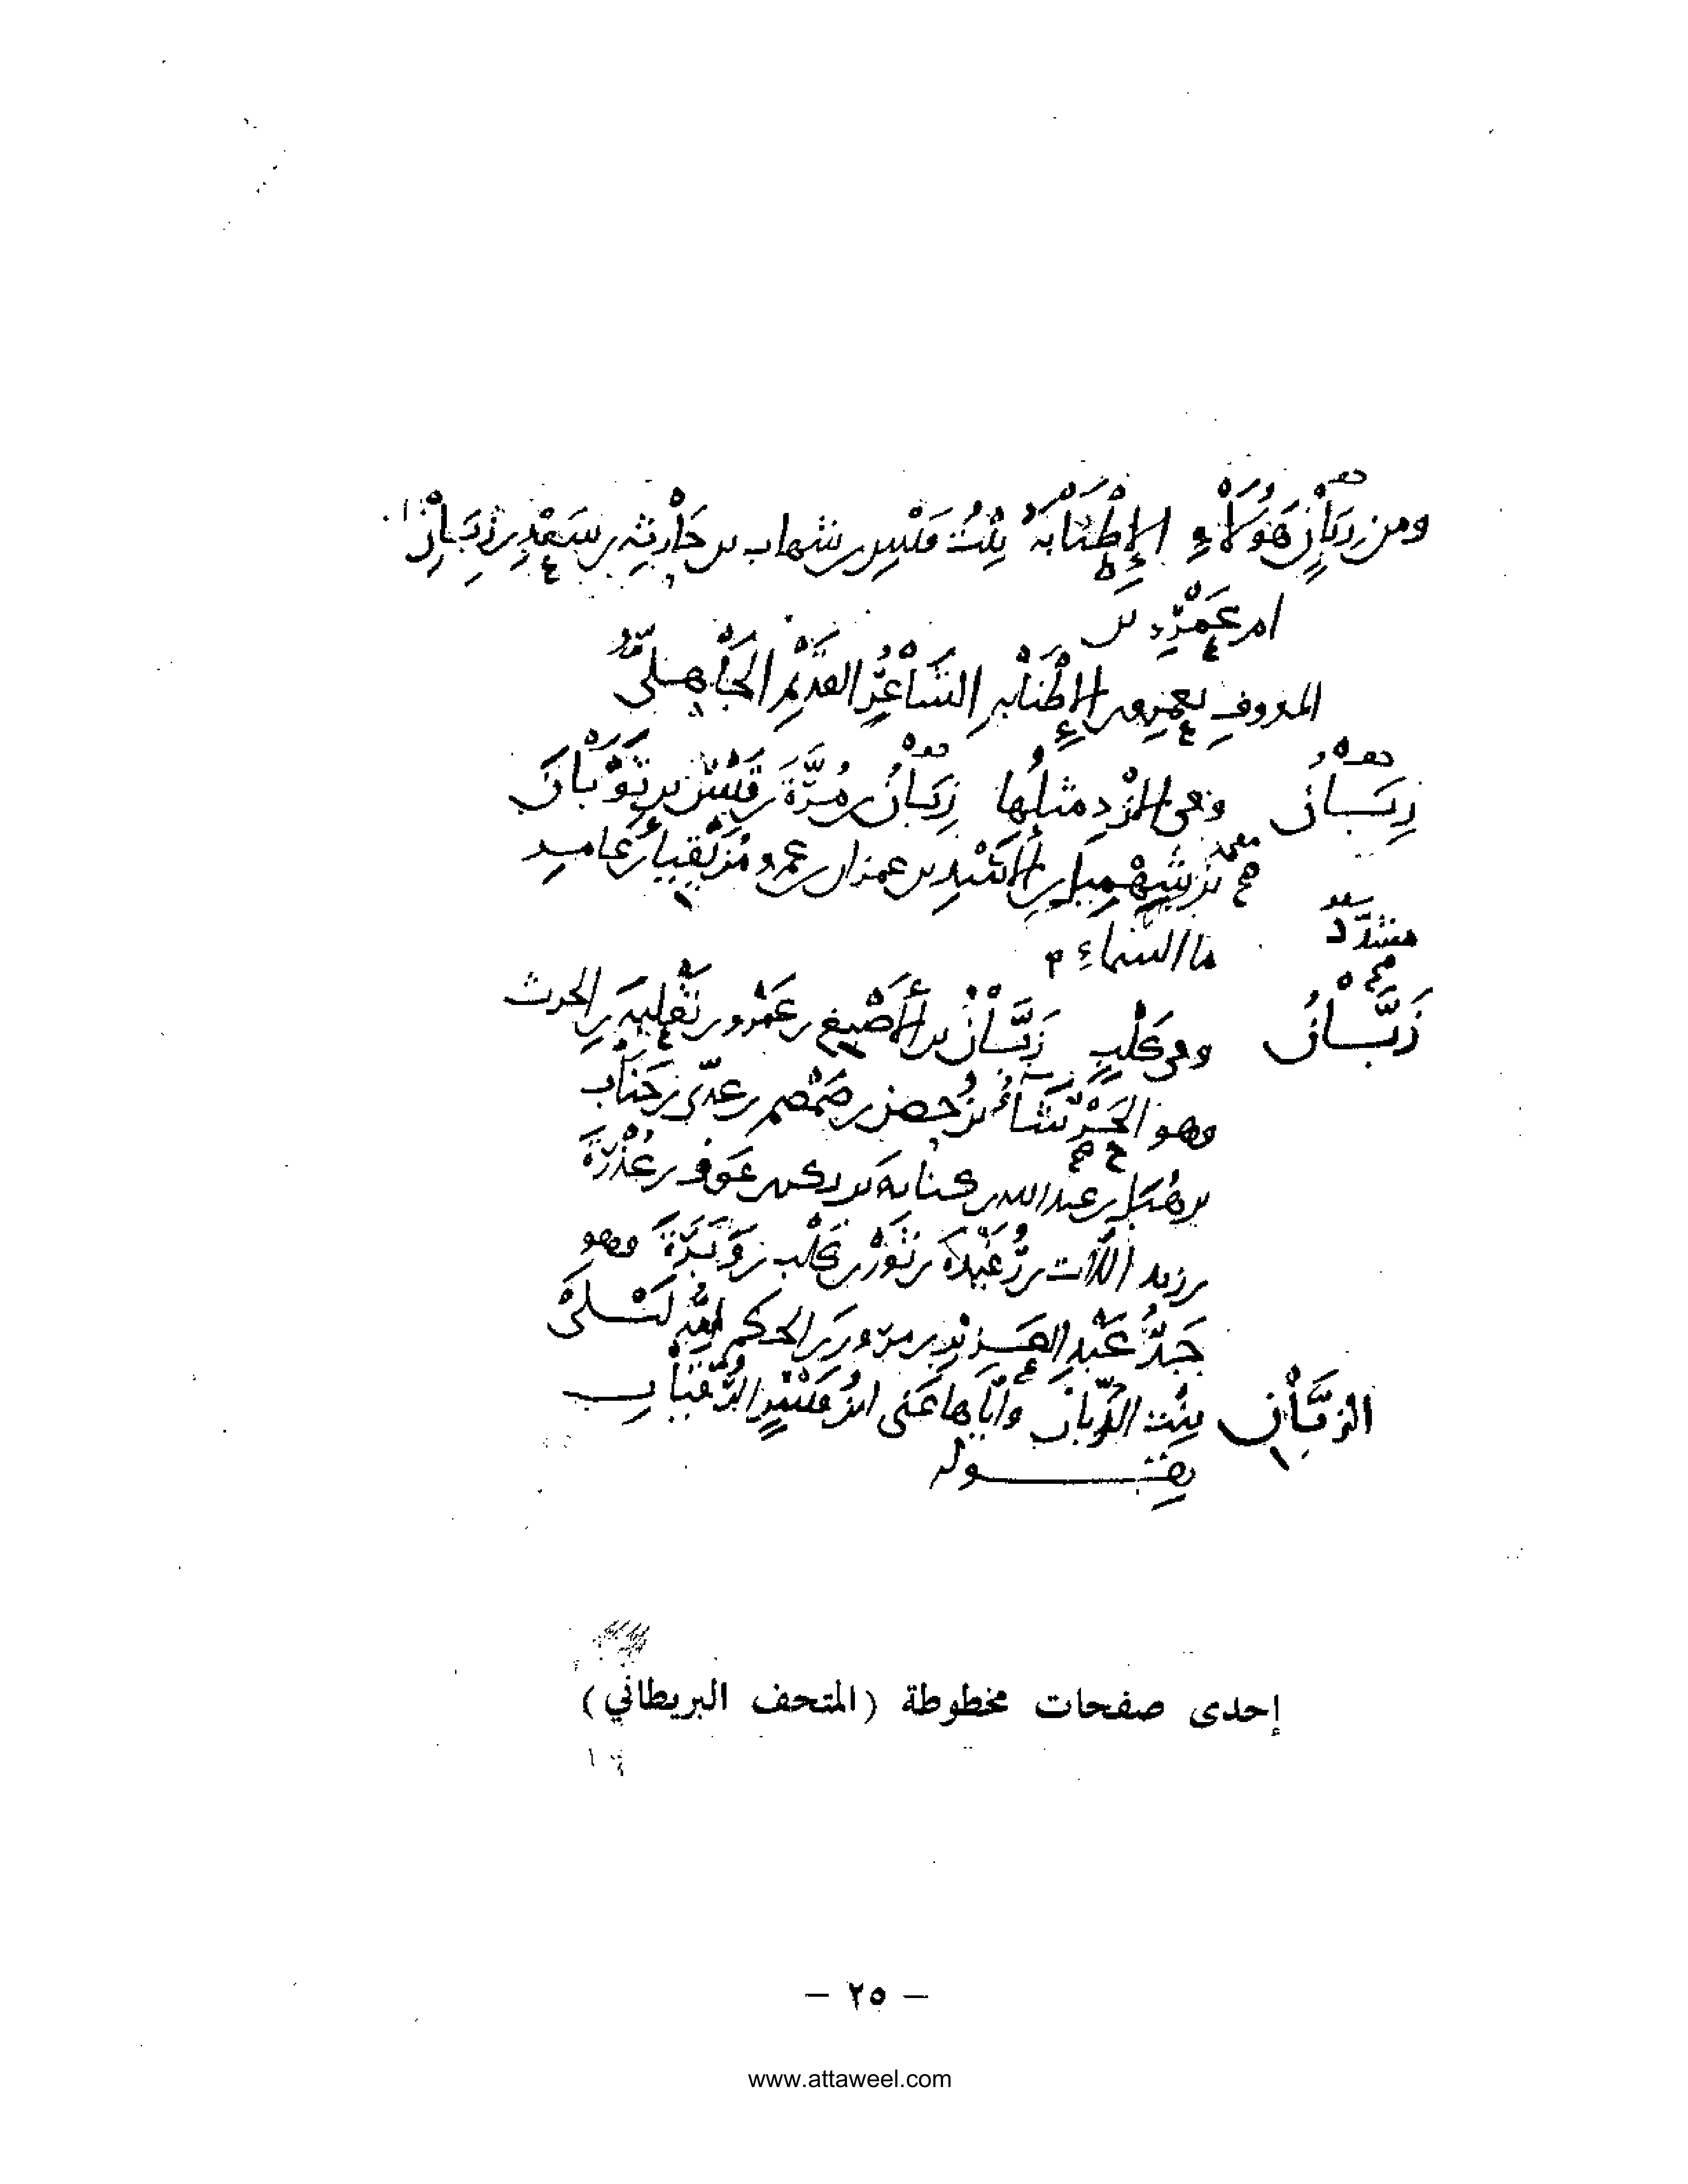 ومن زبان هؤلاء الإطنابة بنت قيس بن شهاب بن حارثة بن سعد بن زبان
ام عمرو بن
المعروف بعمرو بن الإطنابة الشاعر القديم الجاهلي
زبان وفي الأزد مثلها زبان بن مرة بن قيس بن ثوبان
بن شهميل بن الأسد بن عمران بن عمرو مزيقياء بن عامر
مشدد ما السماء
زبان وفي كلب زبان بن الأصبغ بن عمرو بن ثعلبة بن الحرث
وهو الحرشاء بن حصن بن ضمضم بن عدي بن جناب
بن هبل بن عبد الله بن كنانة بن بكر بن عوف بن عذرة
بن زيد اللات بن رفيدة بن ثور بن كلب بن وبرة وهو
جد عبد العزيز بن مروان بن الحكم لأمه ليلى
الزبان بنت الزبان وأياها عنى ابن قيس الرقيات
بقوله
إحدى صفحات مخطوطة (المتحف البريطاني)
– ٢٥ –
www.attaweel.com